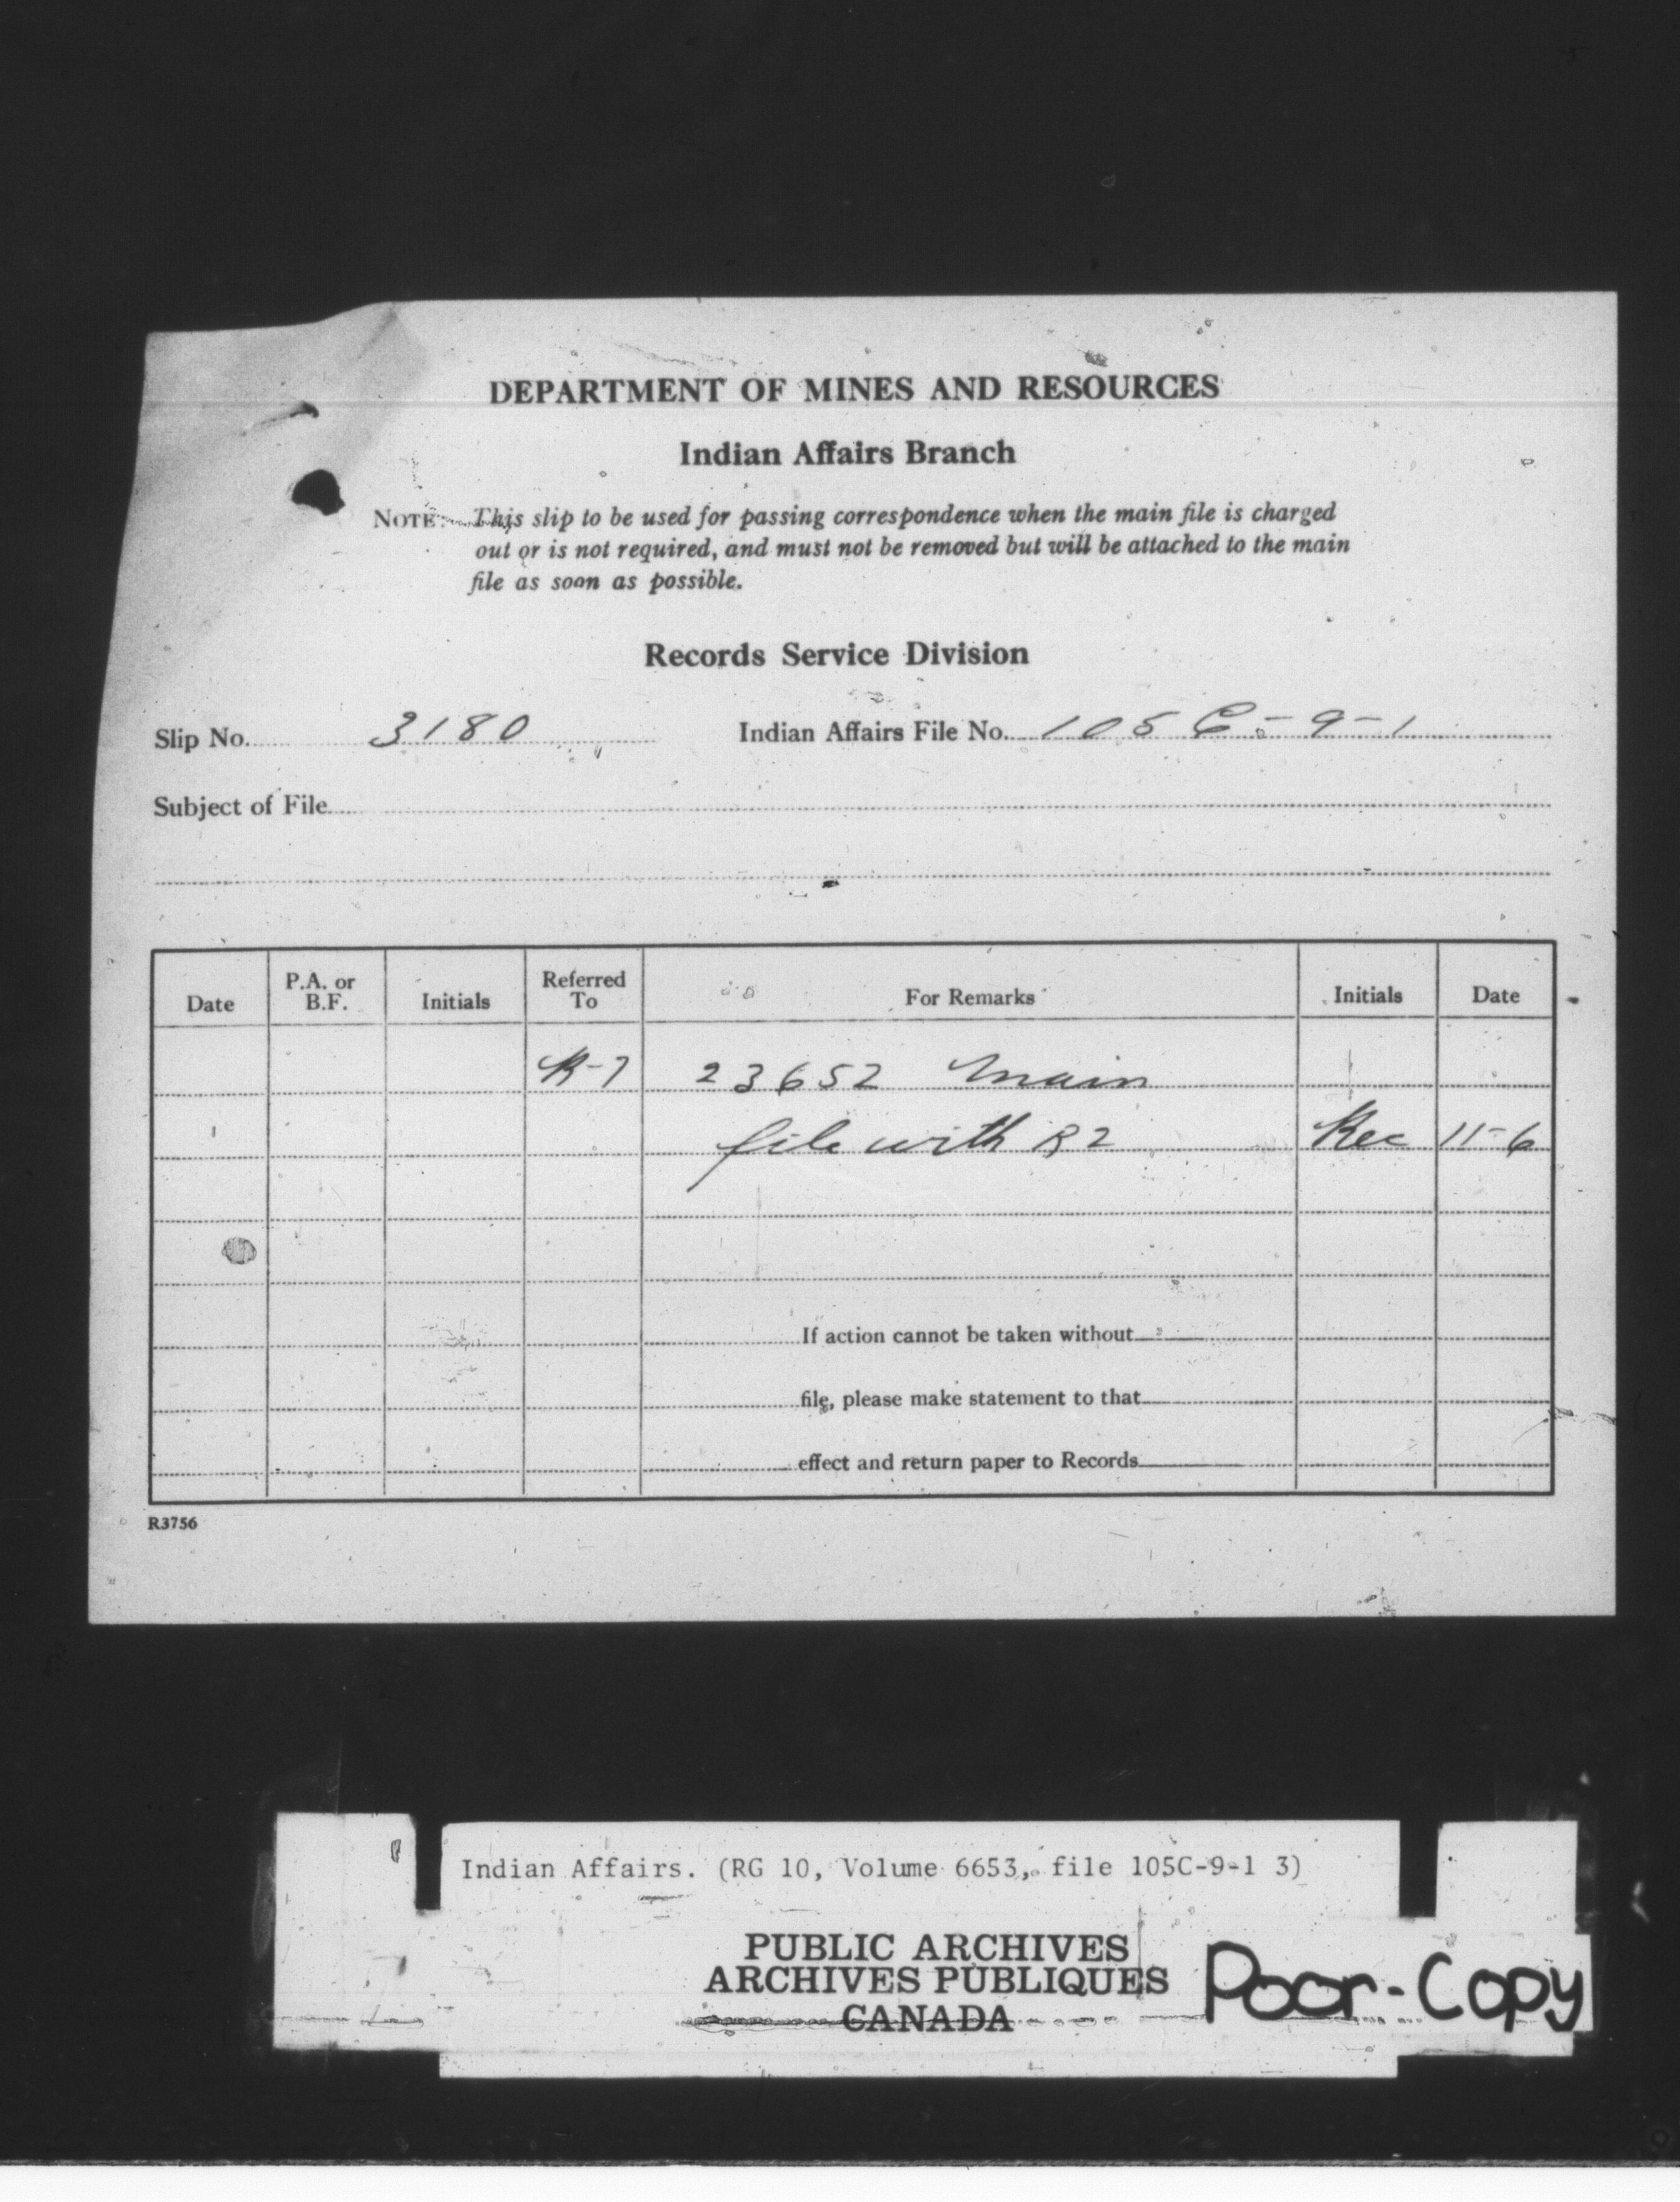 DEPARTMENT OF MINES AND RESOURCES
Indian Affairs Branch
NOTE: This slip to be used for passing correspondence when the main file is charged
out or is not required, and must not be removed but will be attached to the main
file as soon as possible.
Records Service Division
Slip No. 3180 Indian Affairs File No. 105 C-9-1
Subject of File
Date P.A. or B.F. Initials Referred To For Remarks Initials Date
R-7 23652 Main
file with R2 Rec 11-6
If action cannot be taken without
file, please make statement to that
effect and return paper to Records
R3756
Indian Affairs. (RG 10, Volume 6653, file 105C-9-1 3)
PUBLIC ARCHIVES
ARCHIVES PUBLIQUES
CANADA
Poor-Copy